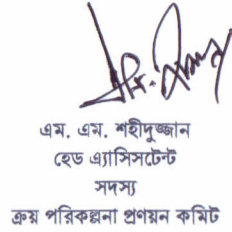 এম. এম. শহীদুজ্জান
হেড এ্যাসিসটেন্ট
সদস্য
ক্রয় পরিকল্পনা প্রণয়ন কমিট